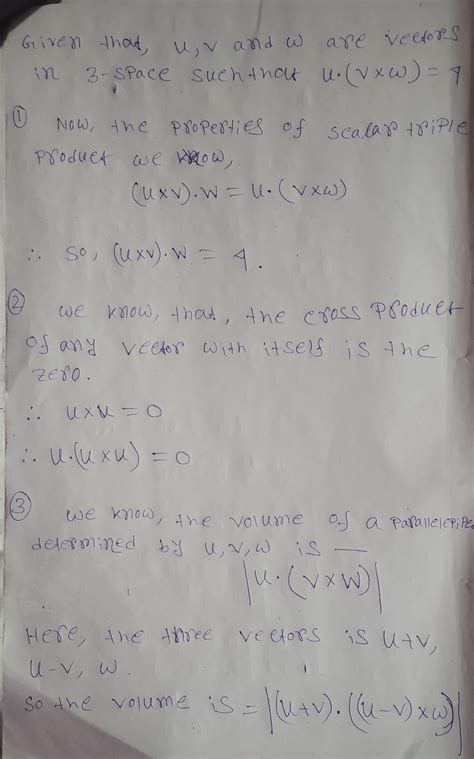 Given that, u, v and w are vectors
in 3-space such that u·(v×w) = 4
① Now, the properties of scalar triple
product we know,
(u×v)·w = u·(v×w)
∴ so, (u×v)·w = 4.
② we know, that, the cross product
of any vector with itself is the
zero.
∴ u×u = 0
∴ u·(u×u) = 0
③ we know, the volume of a parallelepipe
determined by u, v, w is —
|u·(v×w)|
Here, the three vectors is u+v,
u-v, w.
so the volume is = |(u+v)·((u-v)×w)|